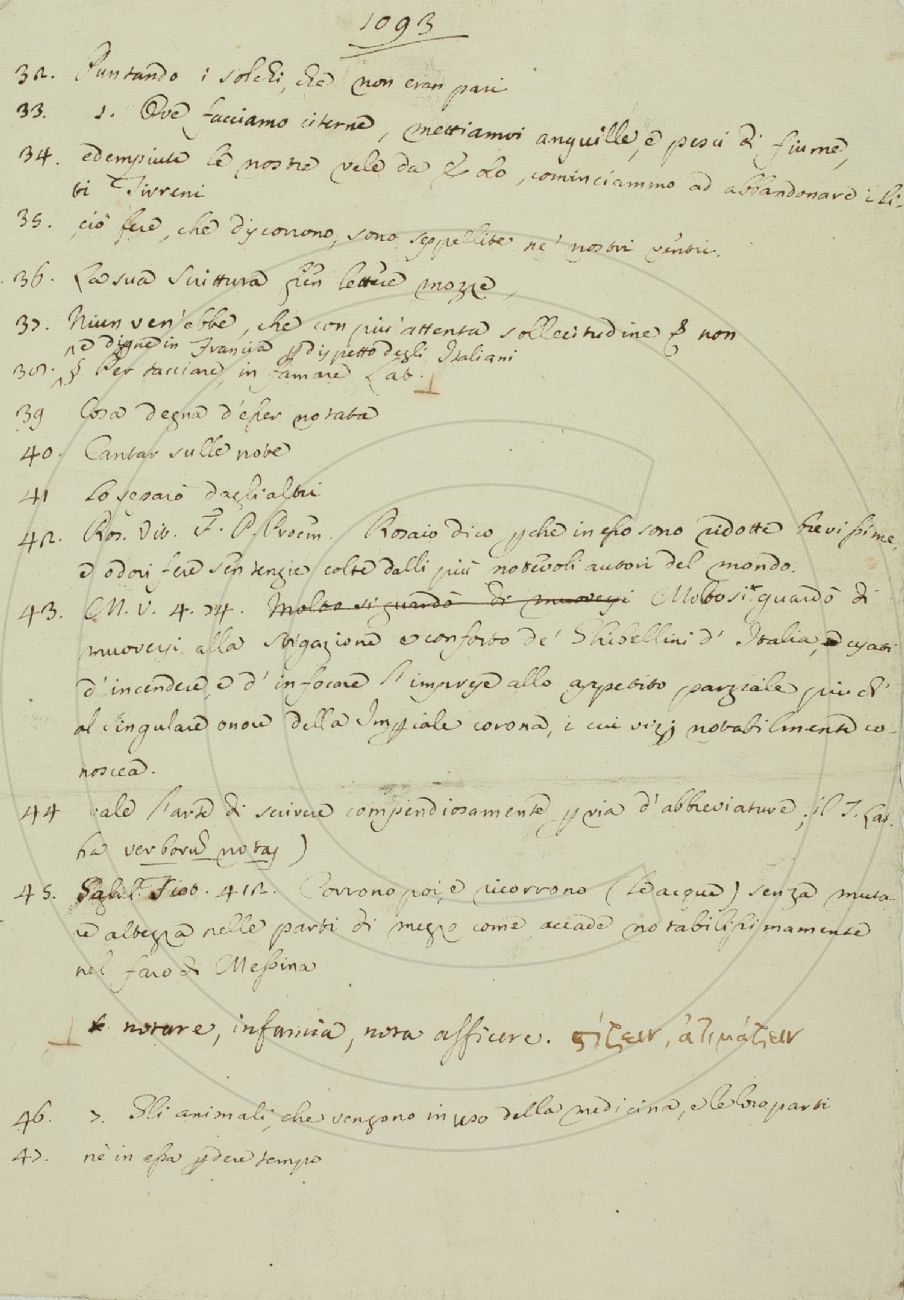 1093
32. Puntando i solchi, che non eran pari
33. 1. Ove facciamo citerne, mettiamvi anguille, e pesci di fiume,
34. ed empiute le nostre vele da Eolo, cominciammo ad abbandonare i li-
ti Tirreni
35. ciò fere, che dyscorrono, sono seppellite ne' nostri ventri.
36. La sua Scrittura fien lettere mozze,
37. Niun ven'ebbe, che con più attenta sollecitudine non
e digne in Francia ꝑ dispetto degli Italiani
38. § Per tacciare, infamare Lat. ⊥
39 Cosa degna d'esser notata
40. Cantar sulle note
41 Lo sezaiò dagli altri
42. Ros. Vit. F. P. Proem. Rosaio dico ꝑche in esso sono ridotte brevissime,
e odorifere sentenzie colte dalli più notevoli autori del mondo.
43. M. V. 4. 74. Molto si guardò di muoversi Molto si guardò di
muoversi alla stigazione e conforto de' Ghibellini d' Italia, e usati
d'incendere, e d' infocare l'imprese allo appetito parziale più ch'
al singulare onore della Imꝑiale corona, i cui vizj notabilmente co-
noscea.
44 vale l'arte di scrivere compendiosamente ꝑ via d'abbreviature; il T. Lat.
ha verborũ notas)
45. Gal. Sist. 412. Corrono poi, e ricorrono (le acque) senza muta-
re altezza nelle parti di mezzo come accade notabilissimamente
nel faro di Messina
⊥ notare, infamia, nota afficere. ςίζειν, ἀτιμάζειν
46. 7. Gli animali, che vengono in uso della medicina, e le loro parti
47. nè in essa ꝑdere tempo